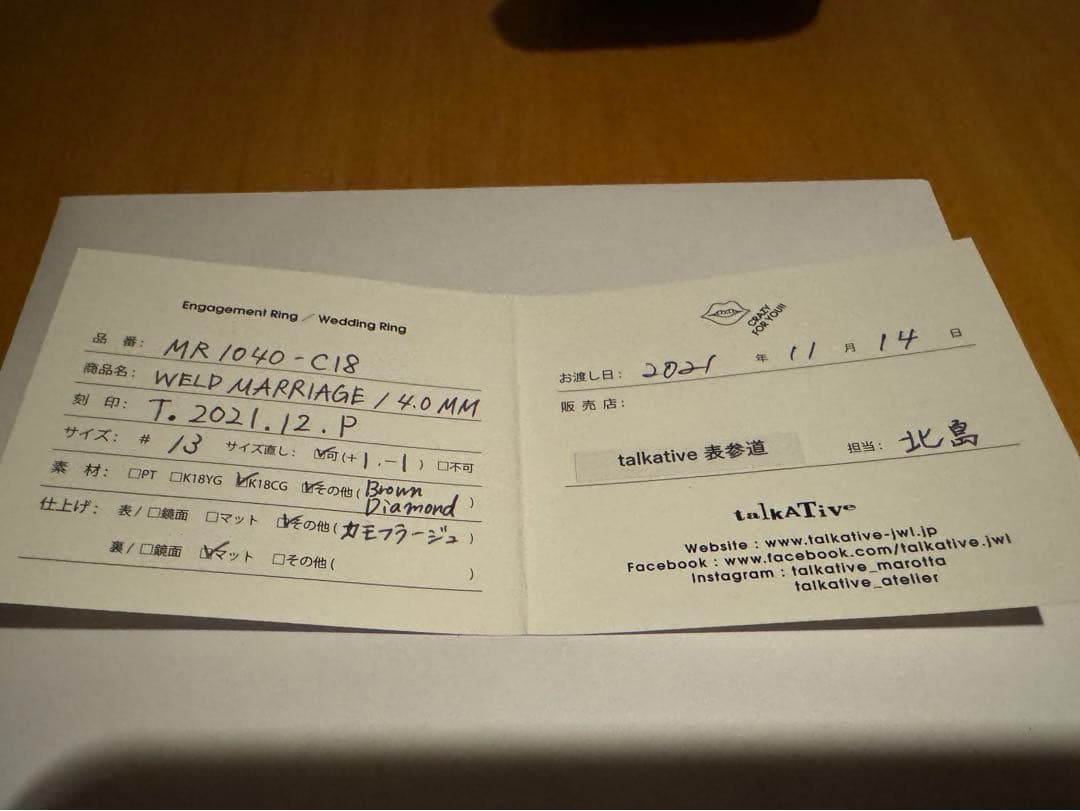 Engagement Ring / Wedding Ring
品番: MR1040-C18
商品名: WELD MARRIAGE / 4.0 MM
刻印: T. 2021.12.P
サイズ: # 13 サイズ直し: ☑可(+1.-1) ☐不可
素材: ☐PT ☐K18YG ☑K18CG ☑その他(Brown Diamond)
仕上げ: 表/☐鏡面 ☐マット ☑その他(カモフラージュ)
裏/☐鏡面 ☑マット ☐その他( )
CRAZY
FOR YOU!!
お渡し日: 2021 年 11 月 14 日
販売店:
talkative 表参道 担当: 北島
talkATive
Website : www.talkative-jwl.jp
Facebook : www.facebook.com/talkative.jwl
Instagram : talkative_marotta
talkative_atelier